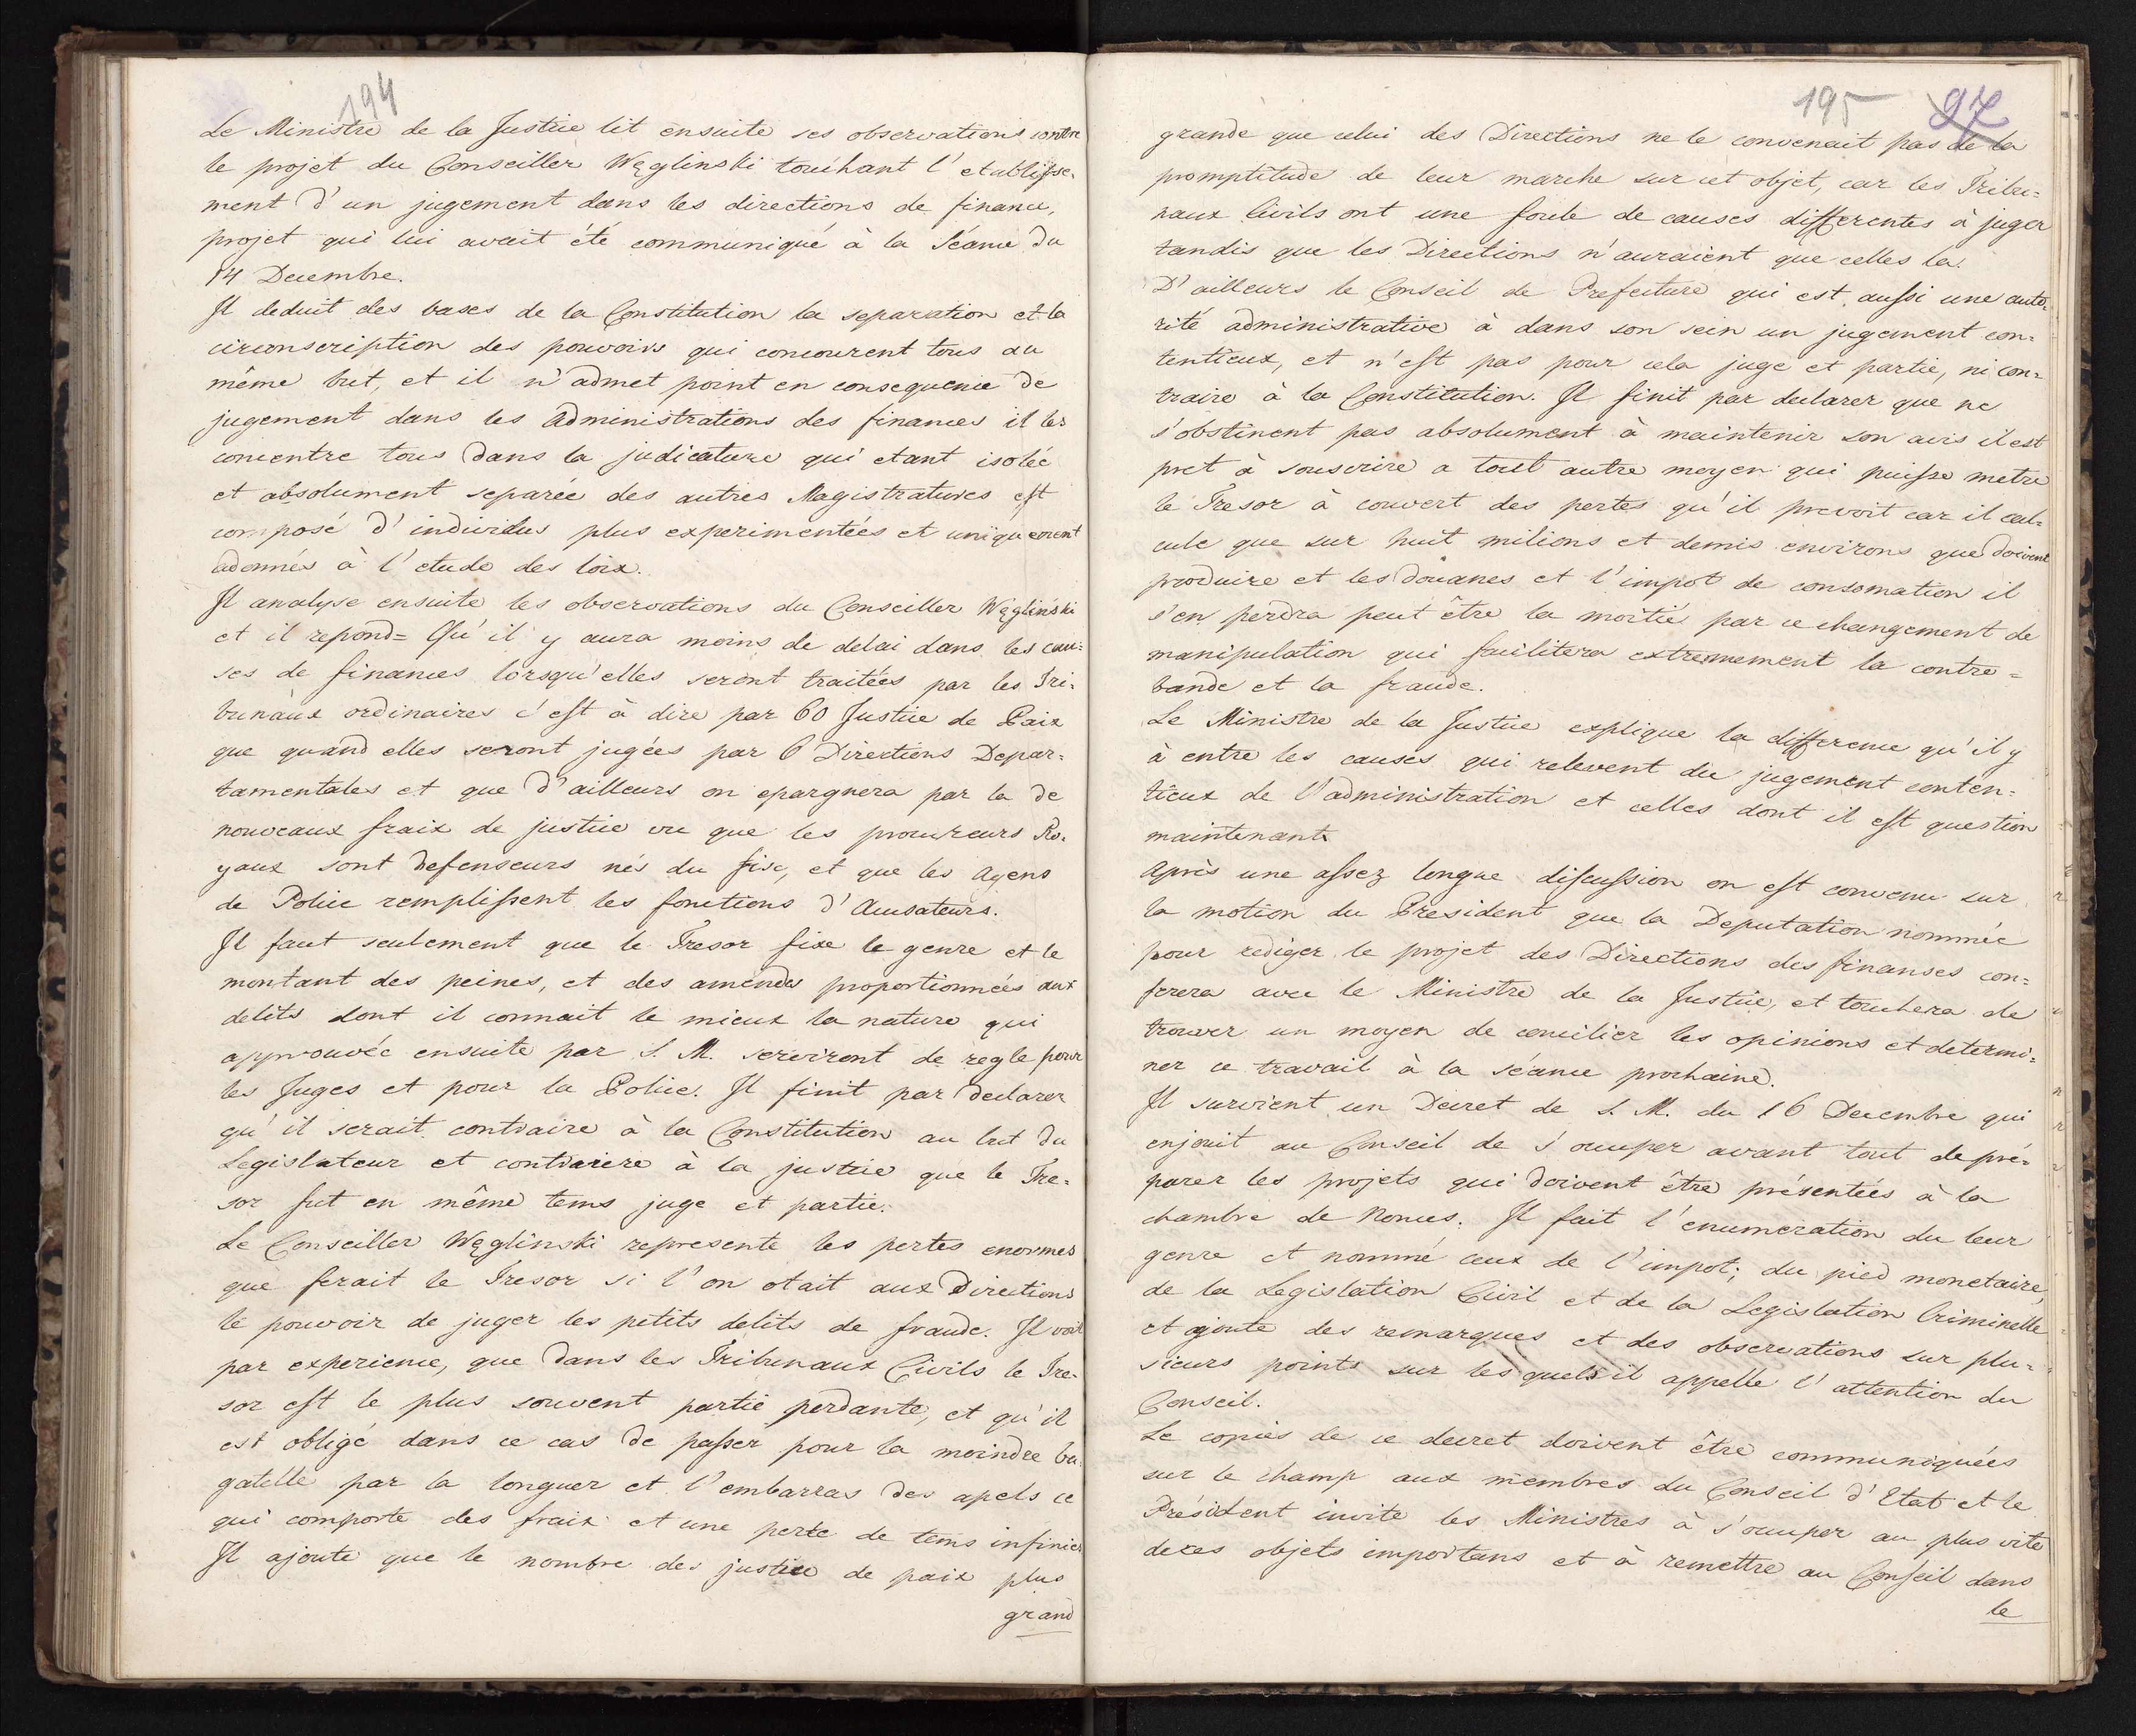 194
Le Ministre de la Justice lit ensuite ses observations contre
le projet du Conseiller Węglinski touchant l'etablisse-
ment d'un jugement dans les directions de finance,
projet qui lui avait été communiqué à la Séance du
14 Decembre.
Il deduit des bases de la Constitution la separation et la
circonscription des pouvoirs qui concourent tous au
même but, et il n'admet point en consequence de
jugement dans les administrations des finances il les
concentre tous dans la judicature qui etant isolée
et absolument separée des autres Magistratures est
composé d'individus plus experimentées et uniquement
adonnés à l'etude des loix.
Il analyse ensuite les observations du Conseiller Węgliński
et il repond= Qu'il y aura moins de delai dans les cau=
ses de finances lorsqu'elles seront traitées par les Tri-
bunaux ordinaires c'est à dire par 60 Justice de Paix
que quand elles seront jugées par 6 Directions Depar=
tamentales et que d'ailleurs on epargnera par la de
nouveaux fraix de justice vu que les procureurs Ro-
yaux sont defenseurs nés du fisc, et que les Agens
de Police remplissent les fonctions d'Accusateurs.
Il faut seulement que le Tresor fixe le genre et le
montant des peines, et des amendes proportionnées aux
delits dont il connait le mieux la nature qui
approuvée ensuite par S. M. serviront de regle pour
les Juges et pour la Police. Il finit par declarer
qu'il serait contraire à la Constitution au but du
Legislateur et contraiere à la justice que le Tre-
sor fut en même tems juge et partie.
Le Conseiller Węglinski represente les pertes enormes
que ferait le Tresor si l'on otait aux Directions
le pouvoir de juger les petits delits de fraude. Il voit
par experience, que dans les Tribunaux Civils le Tre-
sor est le plus souvent partie perdante, et qu'il
est obligé dans ce cas de passer pour la moindre ba-
gatelle par la longuer et l'embarras des apels ce
qui comporte des fraix et une perte de tems infinies
Il ajoute que le nombre des justice de paix plus
grand
195 97
grande que celui des Directions ne le convenait pas de la
promptitude de leur marche sur cet objet, car les Tribu=
naux Civils ont une foule de causes differentes à juger
tandis que les Directions n'auraient que celles la.
D'ailleurs le Conseil de Prefecture qui est aussi une auto-
rité administrative à dans son sein un jugement con=
tentieux, et n'est pas pour cela juge et partie, ni con=
traire à la Constitution. Il finit par declarer que ne
s'obstinent pas absolument à maintenir son avis il est
pret à souscrire a tout autre moyen qui puisse metre
le Tresor à couvert des pertes qu'il prevoit car il cal=
cule que sur huit milions et demis environs que doivent
produire et les doüanes et l'impot de consomation il
s'en perdra peut être la moitié par ce changement de
manipulation qui facilitera extremement la contre=
bande et la fraude.
Le Ministre de la Justice explique la difference qu'il y
à entre les causes qui relevent du jugement conten=
tieux de l'administration et celles dont il est question
maintenant.
Après une assez longue discussion on est convenu sur
la motion du President que la Deputation nommée
pour rediger le projet des Directions des finanses con=
ferera avec le Ministre de la Justice, et touchera de
trouver un moyen de concilier les opinions et determi=
ner ce travail à la séance prochaine.
Il survient un Decret de S. M. du 16 Decembre qui
enjouit au Conseil de s'occuper avant tout de pré=
parer les projets qui doivent être présentées à la
chambre de Nonces. Il fait l'enumeration du leur
genre et nommé ceux de l'impot; du pied monetaire,
de la Legislation Civil et de la Legislation Criminelle
et ajoute des remarques et des observations sur plu=
sieurs points sur les quels il appelle l'attention du
Conseil.
Le copies de ce decret doivent être communiquées
sur le champ aux membres du Conseil d'Etat et le
Président invite les Ministres à s'occuper au plus vite
de ces objets importans et à remettre au Conseil dans
le